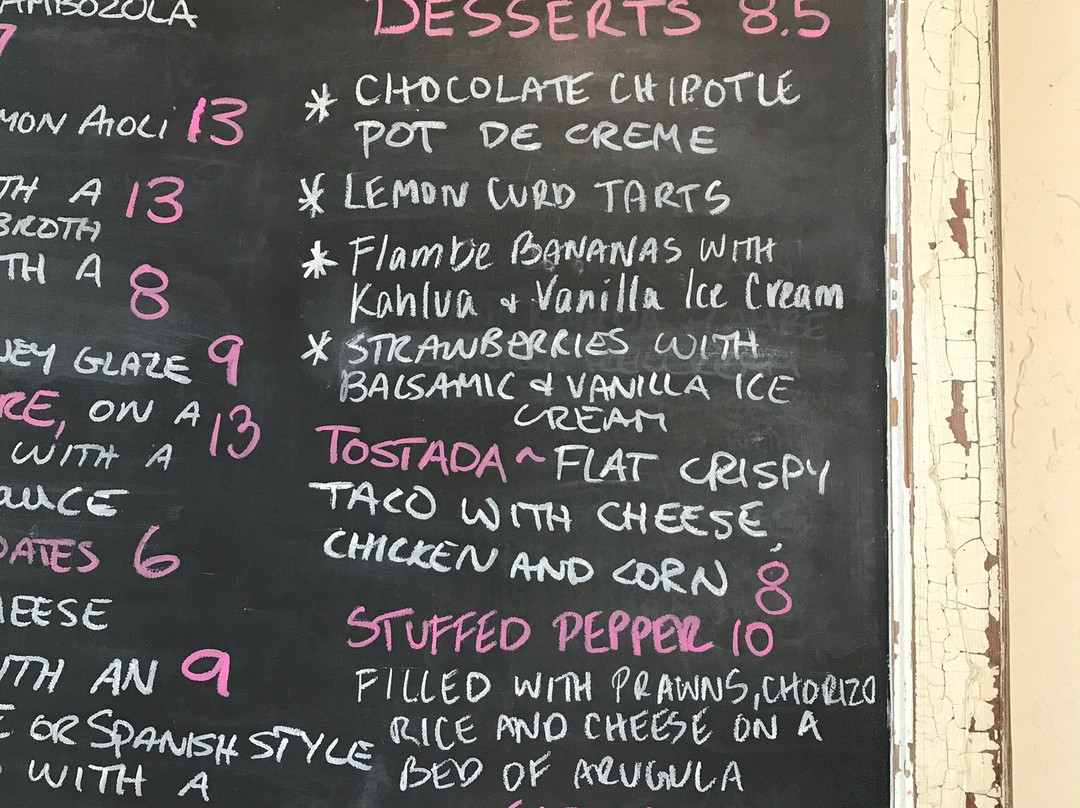 AMBOZOLA
7
MON AIOLI 13
TH A 13
BROTH
TH A 8
NEY GLAZE 9
RE, ON A 13
WITH A
AUCE
DATES 6
HEESE
ITH AN 9
E OR SPANISH STYLE
WITH A
DESSERTS 8.5
* CHOCOLATE CHIPOTLE
POT DE CREME
* LEMON CURD TARTS
* Flambe BANANAS WITH
Kahlua & Vanilla Ice Cream
* STRAWBERRIES WITH
BALSAMIC & VANILLA ICE
CREAM
TOSTADA ~ FLAT CRISPY
TACO WITH CHEESE,
CHICKEN AND CORN 8
STUFFED PEPPER 10
FILLED WITH PRAWNS, CHORIZO
RICE AND CHEESE ON A
BED OF ARUGULA